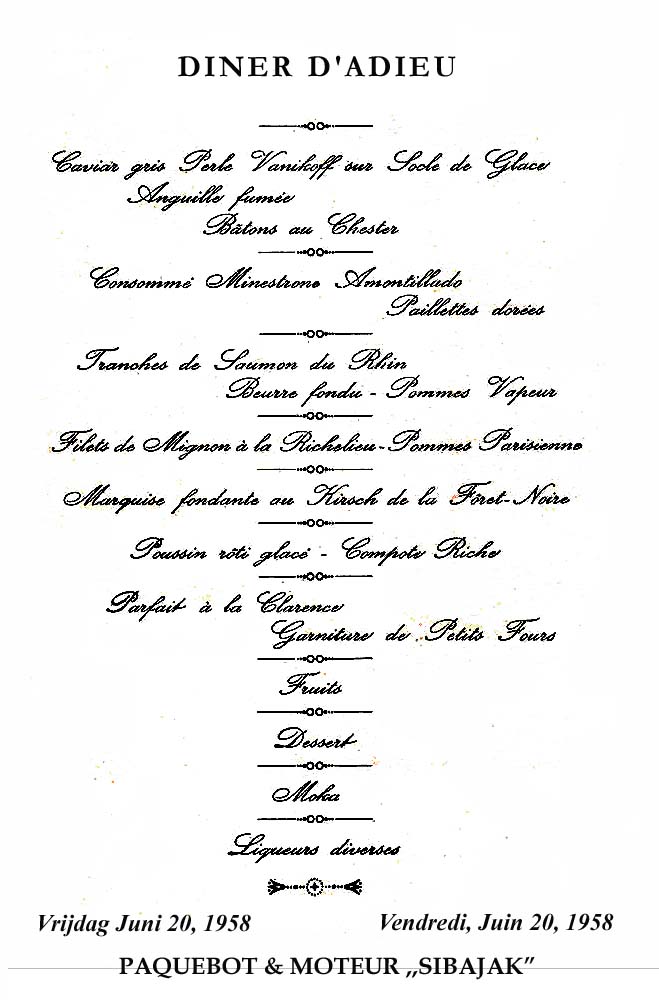 DINER D'ADIEU
Caviar gris Perle Vanikoff sur Socle de Glace
Anguille fumée
Bâtons au Chester
Consommé Minestrone Amontillado
Paillettes dorées
Tranches de Saumon du Rhin
Beurre fondu - Pommes Vapeur
Filets de Mignon à la Richelieu - Pommes Parisienne
Marquise fondante au Kirsch de la Fôret-Noire
Poussin rôti glacé - Compote Riche
Parfait à la Clarence
Garniture de Petits Fours
Fruits
Dessert
Moka
Liqueurs diverses
Vrijdag Juni 20, 1958
Vendredi, Juin 20, 1958
PAQUEBOT & MOTEUR „SIBAJAK”